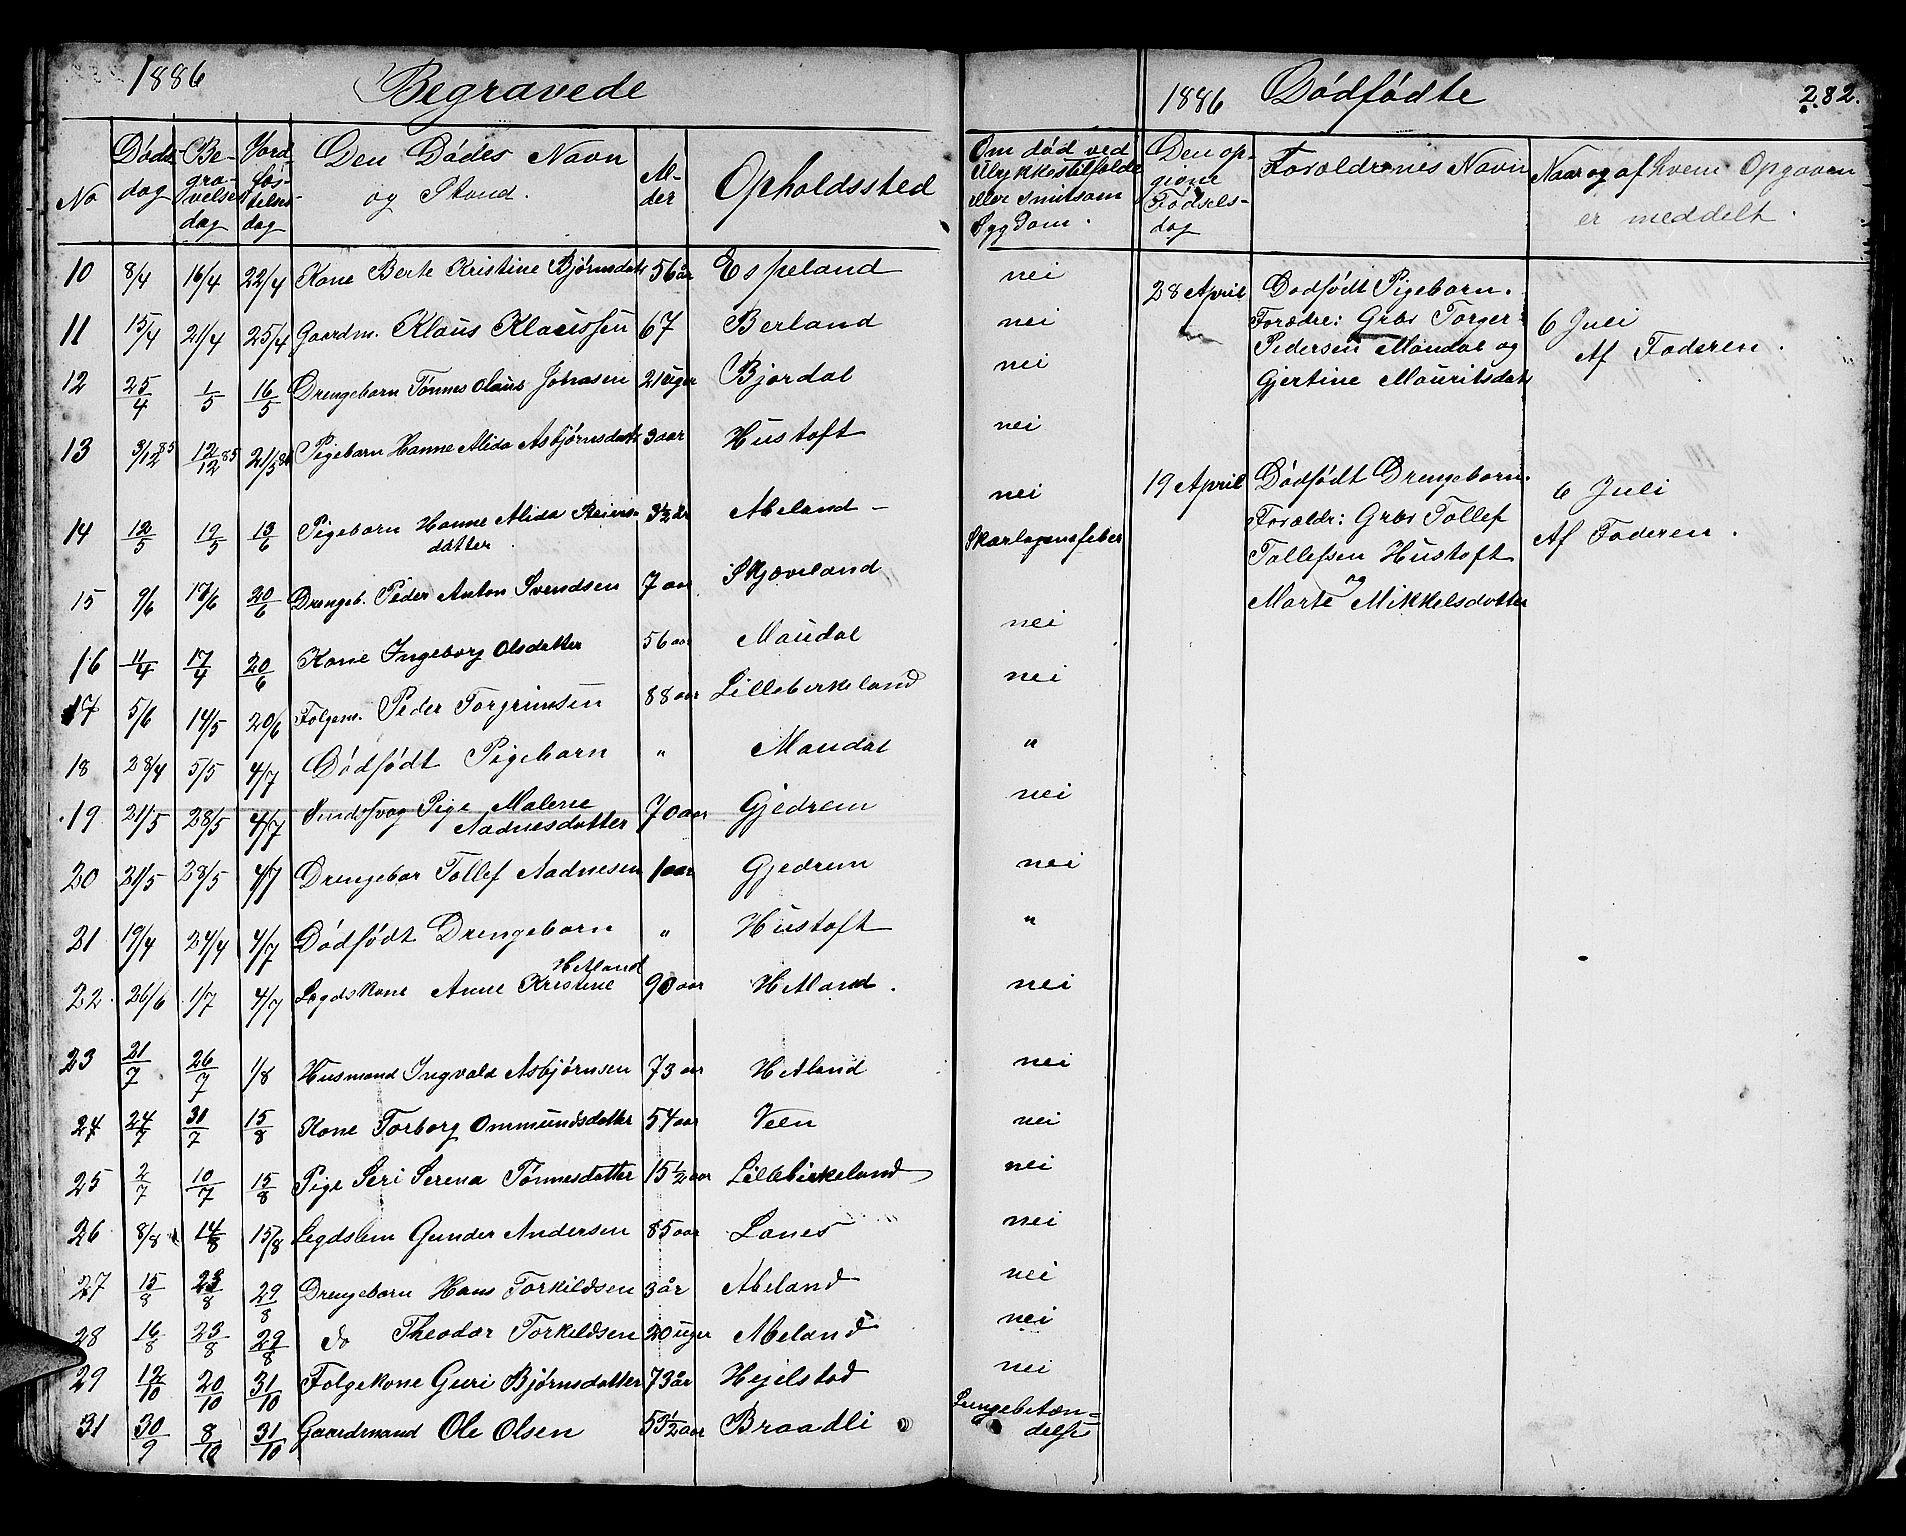 1886 Begravede
No Døds dag Be- gra- velses dag Jord fæs- telses dag Den Dødes Navn og Stand. Al- der Opholdssted Om død ved Ulykkestilfælde eller smitsom Sygdom.
10 8/4 16/4 22/4 Kone Berte Kristine Bjørnsdatr 56 år Espeland nei
11 15/4 21/4 25/4 Gaardm. Klaus Klaussen 67 Berland nei
12 25/4 1/5 16/5 Drengebarn Tønnes Olaus Johnsen 21 uger Bjordal nei
13 3/12 85 12/12 85 21/5 86 Pigebarn Hanne Alida Asbjørnsdatr 3 aar Hustoft nei
14 12/5 19/5 13/6 Pigebarn Hanne Alida Reiers- 3½ år Abeland - nei
datter
15 9/6 17/6 20/6 Drengeb. Peder Anton Svendsen 7 aar Skjæveland Skarlagensfeber
16 11/4 17/4 20/6 Kone Ingeborg Olsdatter 56 aar Maudal nei
17 5/6 14/5 20/6 Folgem. Peder Torgrimsen 88 aar Lillebirkeland nei
18 28/4 5/5 4/7 Dødfødt Pigebarn " Maudal "
19 21/5 28/5 4/7 Sindssvag Pige Malene 70 aar Gjedrem nei
Aadnesdatter
20 21/5 28/5 4/7 Drengebar Tollef Aadnesen 1 aar Gjedrem nei
21 19/4 24/4 4/7 Dødfødt Drengebarn " Hustoft "
Hetland
22 26/6 1/7 4/7 Legdskone Anne Kristine 90 aar Hetland. nei
23 21/7 26/7 1/8 Husmand Ingvald Asbjørnsen 73 aar Hetland nei
24 24/7 31/7 15/8 Kone Torborg Ommundsdatter 54 aar Veen nei
25 2/7 10/7 15/8 Pige Seri Serena Tønnesdatter 15½ aar Lillebirkeland nei
26 8/8 14/8 15/8 Legdslem Gunder Andersen 85 aar Lanes nei
27 15/8 23/8 29/8 Drengebarn Hans Torkildsen 3 år Abeland nei
28 16/8 23/8 29/8 do Theodor Torkildsen 20 uger Abeland nei
29 12/10 20/10 31/10 Folgekone Guri Bjørnsdatter 73 år Hejelstad nei
31 30/9 8/10 31/10 Gaardmand Ole Olsen 53½ aar Braadli Lungebetæn-
delse
1886 Dødfødte 282.
Den op- givne Fødsels- dag Foræeldrenes Navn Naar og af hvem Opgaven er meddelt.
28 April Dødfødt Pigebarn.
Forædre: Grbr Torger 6 Juli
Pedersen Maudal og Af Faderen.
Gjertine Mauritsdatr
19 April Dødfødt Drengebarn. 6 Juli
Forældr: Grbr Tollef Af Faderen.
Tollefsen Hustoft
og
Marte Mikkelsdatter